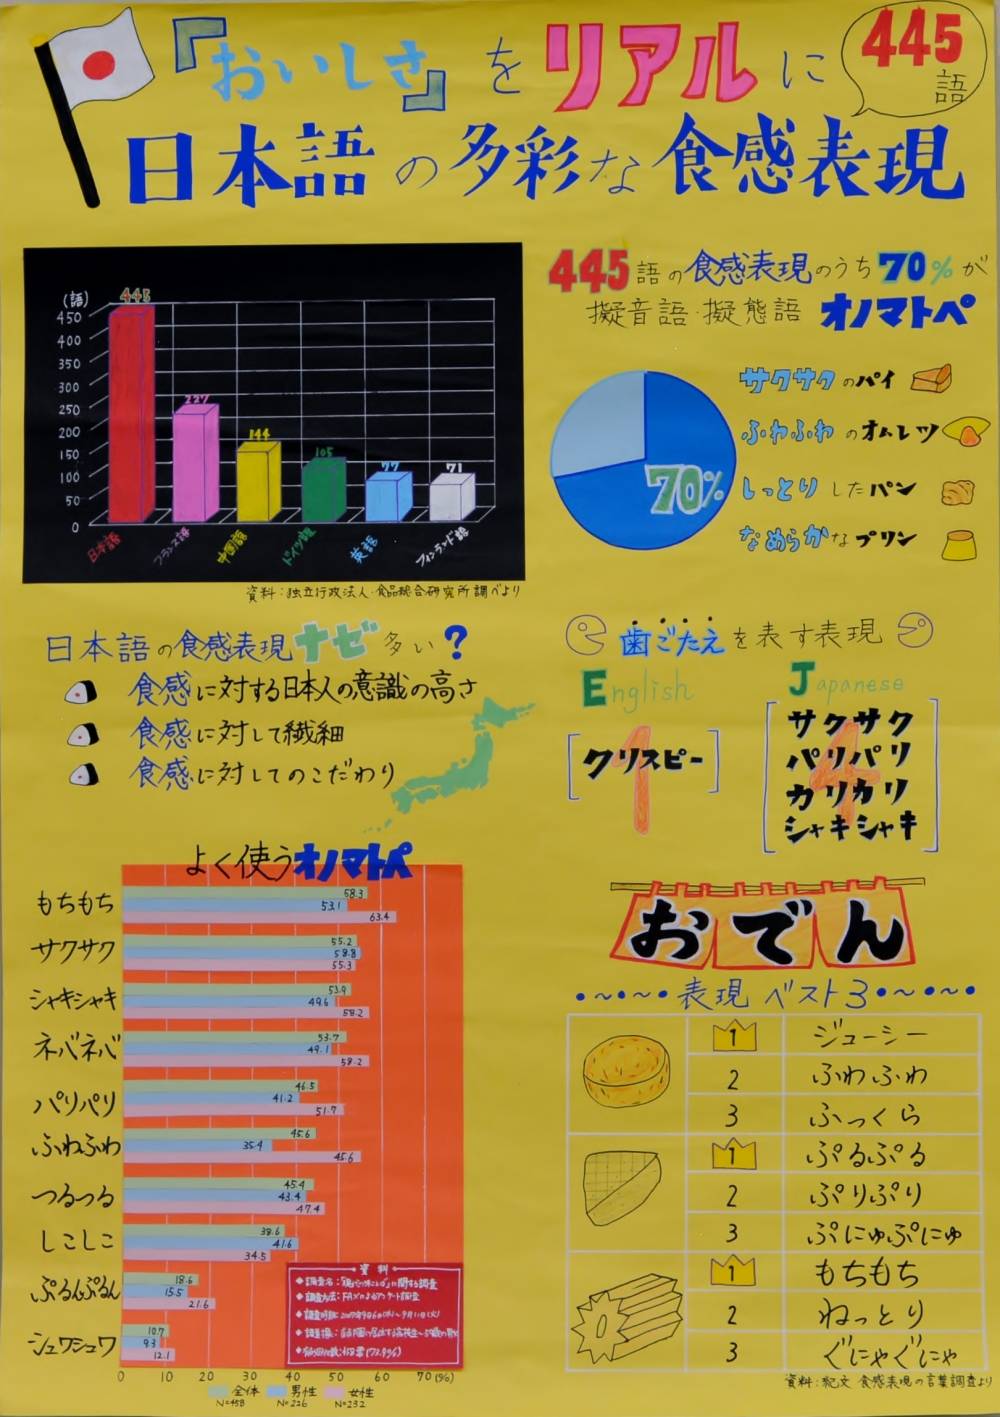 『おいしさ』をリアルに
445語
日本語の多彩な食感表現
(語)
450
400
350
300
250
200
150
100
50
0
445
227
144
105
77
71
日本語
フランス語
中国語
ドイツ語
英語
フィンランド語
資料：独立行政法人・食品総合研究所調べより
445語の食感表現のうち70%が
擬音語・擬態語 オノマトペ
70%
サクサクのパイ
ふわふわのオムレツ
しっとりしたパン
なめらかなプリン
日本語の食感表現ナゼ多い？
食感に対する日本人の意識の高さ
食感に対して繊細
食感に対してのこだわり
歯ごたえを表す表現
English
1
クリスピー
Japanese
4
サクサク
パリパリ
カリカリ
シャキシャキ
よく使うオノマトペ
もちもち 58.3 53.1 63.4
サクサク 55.2 58.8 55.3
シャキシャキ 53.9 49.6 58.2
ネバネバ 53.7 49.1 58.2
パリパリ 46.5 41.2 51.7
ふわふわ 45.6 35.4 45.6
つるつる 45.4 43.4 47.4
しこしこ 38.6 41.6 34.5
ぷるんぷるん 18.6 15.5 21.6
シュワシュワ 10.7 9.3 12.1
0 10 20 30 40 50 60 70 (%)
全体 N=458
男性 N=226
女性 N=232
資料
◆調査方法：FAXによるアンケート調査
おでん
表現 ベスト3
1 ジューシー
2 ふわふわ
3 ふっくら
1 ぷるぷる
2 ぷりぷり
3 ぷにゅぷにゅ
1 もちもち
2 ねっとり
3 ぐにゃぐにゃ
資料：紀文 食感表現の言葉調査より